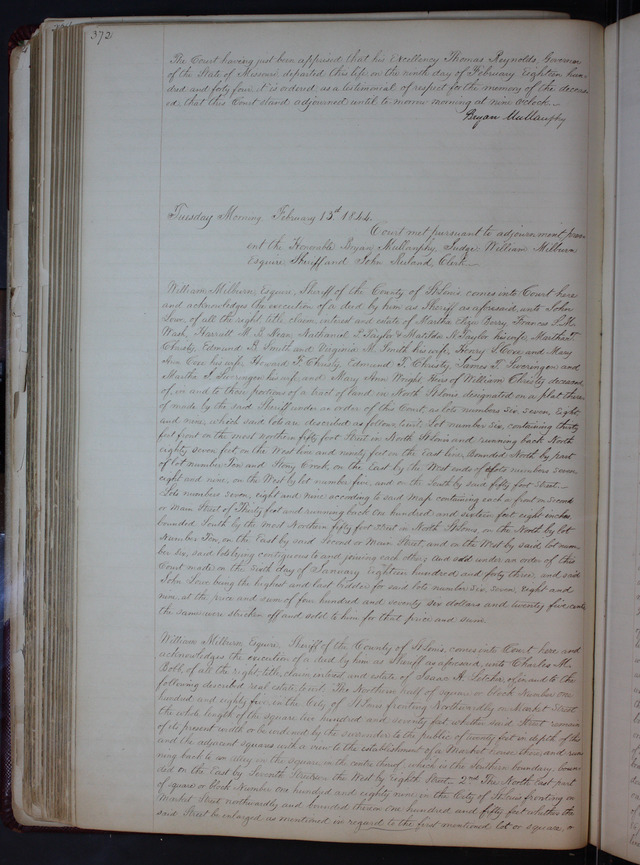 372
The Court having just been apprised that his Excellency Thomas Reynolds, Governor
of the State of Missouri departed this life on the ninth day of February Eighteen hun-
dred and forty four, it is ordered, as a testimonial of respect for the memory of the deceas-
ed, that this Court stand adjourned until to morrow morning at nine o'clock.
Bryan Mullanphy
Tuesday Morning February 13th 1844.
Court met pursuant to adjournment, pres-
ent the Honorable Bryan Mullanphy Judge, William Milburn
Esquire Sheriff and John Ruland Clerk.
William Milburn, Esquire, Sheriff of the County of St Louis comes into Court here
and acknowledges the execution of a deed by him as Sheriff as aforesaid, unto John
Lowe, of all the right, title, claim, interest and estate of Martha Eliza Berry, Francis
Wash, Nathaniel P. Taylor & Matilda N. Taylor his wife, Martha T.
Christy, Edmund B. Smith and Virginia M. Smith his wife, Henry and Mary
Ann his wife, Howard F. Christy, Edmund T. Christy, James T. Swearingen and
Martha T. Swearingen his wife, and Mary Ann Wright, Heirs of William Christy deceased
of, in and to those portions of a tract of land in North St Louis designated on a plat there-
of made by the said Sheriff under an order of this Court as lots numbers six, seven, Eight
and nine, which said lots are described as follows, towit: Lot number six, containing thirty
feet front on the most northern fifty foot Street in North St Louis and running back North
eighty seven feet on the West line and ninety feet on the East line, bounded North by part
of lot number Ten and Stony Creek, on the East by the West ends of lots numbers seven
eight and nine, on the West by lot number five, and on the South by said fifty foot Street.
Lots numbers seven, eight and nine according to said map containing each a front on Second
or Main Street of Thirty feet and running back One hundred and sixteen feet eight inches
bounded South by the most Northern fifty foot Street in North St Louis, on the North by lot
Number Ten, on the East by said Second or Main Street and on the West by said lot num-
ber six, said lots lying contiguous to and joining each other, and sold under an order of this
Court made on the sixth day of January Eighteen hundred and forty three, and said
John Lowe being the highest and last bidder for said lots number six, seven, Eight and
nine, at the price and sum of four hundred and seventy six dollars and twenty five cents
the same were stricken off and sold to him for that price and sum.
William Milburn, Esquire, Sheriff of the County of St Louis, comes into Court here and
acknowledges the execution of a deed by him as Sheriff as aforesaid, unto Charles M.
of all the right, title, claim, interest and estate of Isaac A. Letcher, of, in and to the
following described real estate, towit: The Northern half of square or block Number One
hundred and eighty five, in the City of St Louis fronting Northwardly on Market Street
the whole length of the square two hundred and seventy feet whether said Street remain
of its present width or be widened by the surrender to the public of twenty feet in depth of this
and the adjacent squares with a view to the establishment of a Market house there, and run-
ning back to an alley in the square, in the centre thereof, which is the Southern boundary, boun-
ded on the East by Seventh Street on the West by Eighth Street. 2nd The North East part
of square or block Number One hundred and eighty nine in the City of St Louis fronting on
Market Street northwardly and bounded therein one hundred and fifty feet whether the
said Street be enlarged as mentioned in regard to the first mentioned lot or square, or